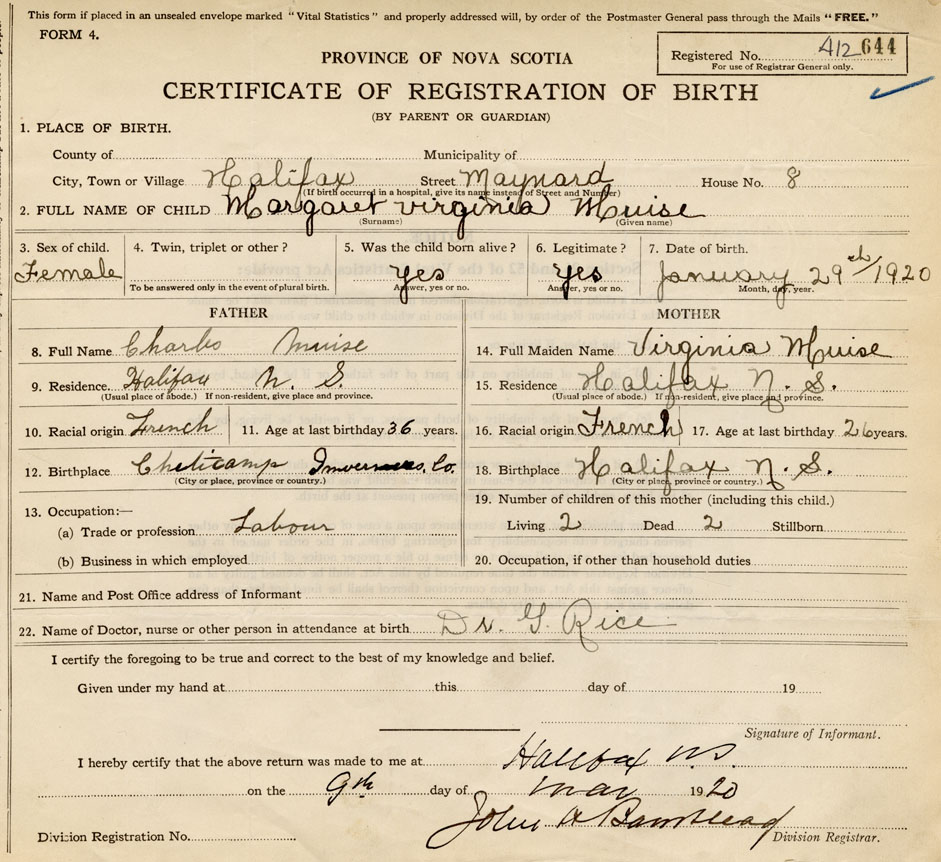 This form if placed in an unsealed envelope marked "Vital Statistics" and properly addressed will, by order of the Postmaster General pass through the Mails "FREE."
FORM 4.
Registered No. 412 644
For use of Registrar General only.
PROVINCE OF NOVA SCOTIA
CERTIFICATE OF REGISTRATION OF BIRTH
(BY PARENT OR GUARDIAN)
1. PLACE OF BIRTH.
County of Municipality of
City, Town or Village Halifax Street Maynard House No. 8
(If birth occurred in a hospital, give its name instead of Street and Number)
2. FULL NAME OF CHILD Margaret virginia Muise
(Surname) (Given name)
3. Sex of child. 4. Twin, triplet or other? 5. Was the child born alive? 6. Legitimate? 7. Date of birth.
Female yes Yes January 29th/1920
To be answered only in the event of plural birth. Answer, yes or no. Answer, yes or no. Month, day, year.
FATHER MOTHER
8. Full Name Charles Muise 14. Full Maiden Name Virginia Muise
9. Residence. Halifax N. S. 15. Residence Halifax N. S.
(Usual place of abode.) If non-resident, give place and province. (Usual place of abode.) If non-resident, give place and province.
10. Racial origin French 11. Age at last birthday 36 years. 16. Racial origin French 17. Age at last birthday 26 years.
12. Birthplace Cheticamp Inverness. Co. 18. Birthplace Halifax N. S.
(City or place, province or country.) (City or place, province or country.)
19. Number of children of this mother (including this child.)
13. Occupation:—
(a) Trade or profession Labour Living 2 Dead 2 Stillborn
(b) Business in which employed 20. Occupation, if other than household duties
21. Name and Post Office address of Informant
22. Name of Doctor, nurse or other person in attendance at birth Dr. G. Rice
I certify the foregoing to be true and correct to the best of my knowledge and belief.
Given under my hand at this day of 19
Signature of Informant.
I hereby certify that the above return was made to me at Halifax N.S.
on the 9th day of Mar 1920
John A
Division Registration No. Division Registrar.